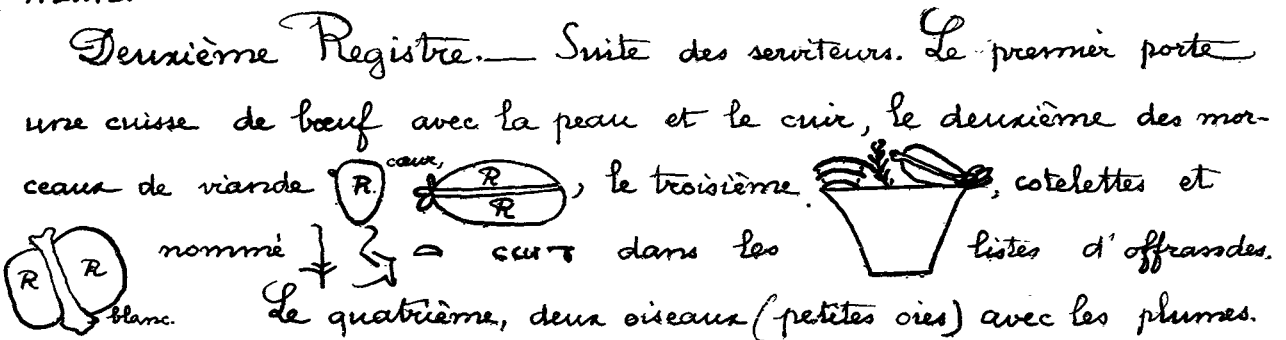 Deuxième Registre. — Suite des serviteurs. Le premier porte
une cuisse de bœuf avec la peau et le cuir, le deuxième des mor-
ceaux de viande R. cœur, R R, le troisième, cotelettes et
R R blanc. nommé dans les listes d'offrandes.
Le quatrième, deux oiseaux (petites oies) avec les plumes.